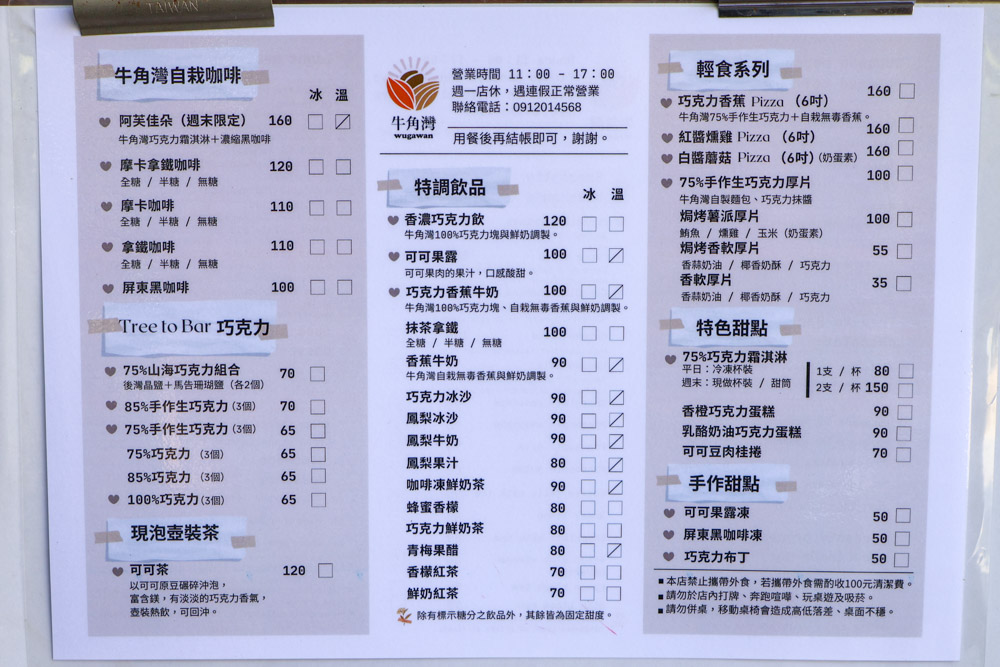 TAIWAN
牛角灣自栽咖啡
冰 溫
阿芙佳朵（週末限定） 160
牛角灣巧克力霜淇淋＋濃縮黑咖啡
摩卡拿鐵咖啡 120
全糖 / 半糖 / 無糖
摩卡咖啡 110
全糖 / 半糖 / 無糖
拿鐵咖啡 110
全糖 / 半糖 / 無糖
屏東黑咖啡 100
Tree to Bar 巧克力
75%山海巧克力組合 70
後灣晶鹽＋馬告珊瑚鹽（各2個）
85%手作生巧克力（3個） 70
75%手作生巧克力（3個） 65
75%巧克力（3個） 65
85%巧克力（3個） 65
100%巧克力（3個） 65
現泡壺裝茶
可可茶 120
以可可原豆碾碎沖泡，
富含鎂，有淡淡的巧克力香氣，
壺裝熱飲，可回沖。
牛角灣
wugawan
營業時間 11：00 – 17：00
週一店休，遇連假正常營業
聯絡電話：0912014568
用餐後再結帳即可，謝謝。
特調飲品
冰 溫
香濃巧克力飲 120
牛角灣100%巧克力塊與鮮奶調製。
可可果露 100
可可果肉的果汁，口感酸甜。
巧克力香蕉牛奶 100
牛角灣100%巧克力塊、自栽無毒香蕉與鮮奶調製。
抹茶拿鐵 100
全糖 / 半糖 / 無糖
香蕉牛奶 90
牛角灣自栽無毒香蕉與鮮奶調製。
巧克力冰沙 90
鳳梨冰沙 90
鳳梨牛奶 90
鳳梨果汁 80
咖啡凍鮮奶茶 90
蜂蜜香檬 80
巧克力鮮奶茶 80
青梅果醋 80
香檬紅茶 70
鮮奶紅茶 70
除有標示糖分之飲品外，其餘皆為固定甜度。
輕食系列
巧克力香蕉 Pizza （6吋） 160
牛角灣75%手作生巧克力＋自栽無毒香蕉。
紅醬燻雞 Pizza （6吋） 160
白醬蘑菇 Pizza （6吋）（奶蛋素） 160
75%手作生巧克力厚片 100
牛角灣自製麵包、巧克力抹醬
焗烤薯派厚片 100
鮪魚 / 燻雞 / 玉米（奶蛋素）
焗烤香軟厚片 55
香蒜奶油 / 椰香奶酥 / 巧克力
香軟厚片 35
香蒜奶油 / 椰香奶酥 / 巧克力
特色甜點
75%巧克力霜淇淋
平日：冷凍杯裝 1支 / 杯 80
週末：現做杯裝 / 甜筒 2支 / 杯 150
香橙巧克力蛋糕 90
乳酪奶油巧克力蛋糕 90
可可豆肉桂捲 70
手作甜點
可可果露凍 50
屏東黑咖啡凍 50
巧克力布丁 50
■本店禁止攜帶外食，若攜帶外食需酌收100元清潔費。
■請勿於店內打牌、奔跑喧嘩、玩桌遊及吸菸。
■請勿併桌，移動桌椅會造成高低落差、桌面不穩。